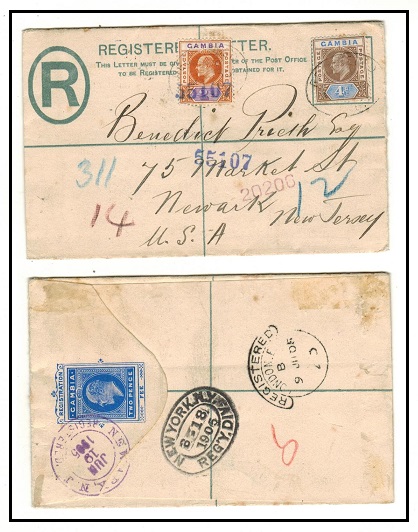 REGISTERED LETTER.
THIS LETTER MUST BE GIVEN OFFICER OF THE POST OFFICE
TO BE REGISTERED, OBTAINED FOR IT.
R
GAMBIA
POSTAGE POSTAGE
GAMBIA
POSTAGE POSTAGE
4d
55107
Benedict Prieth Esq
55107
75 Market St
311
20206
12
Newark
14
New Jersey
U.S.A
REGISTRATION FEE
GAMBIA
TWO PENCE
REGISTERED
LONDON
8 JU 05
NEW YORK, N.Y.
8-18
1905
REG'Y. DIV.
JUN
19
1905
N.J.